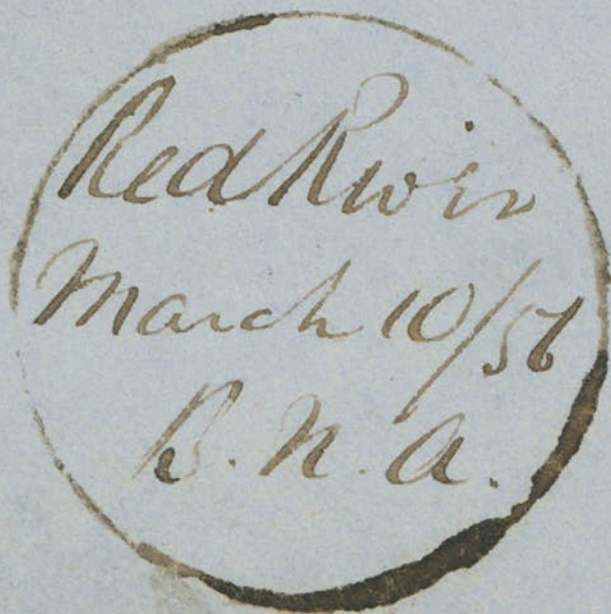 Red River
March 10/56
B.N.A.